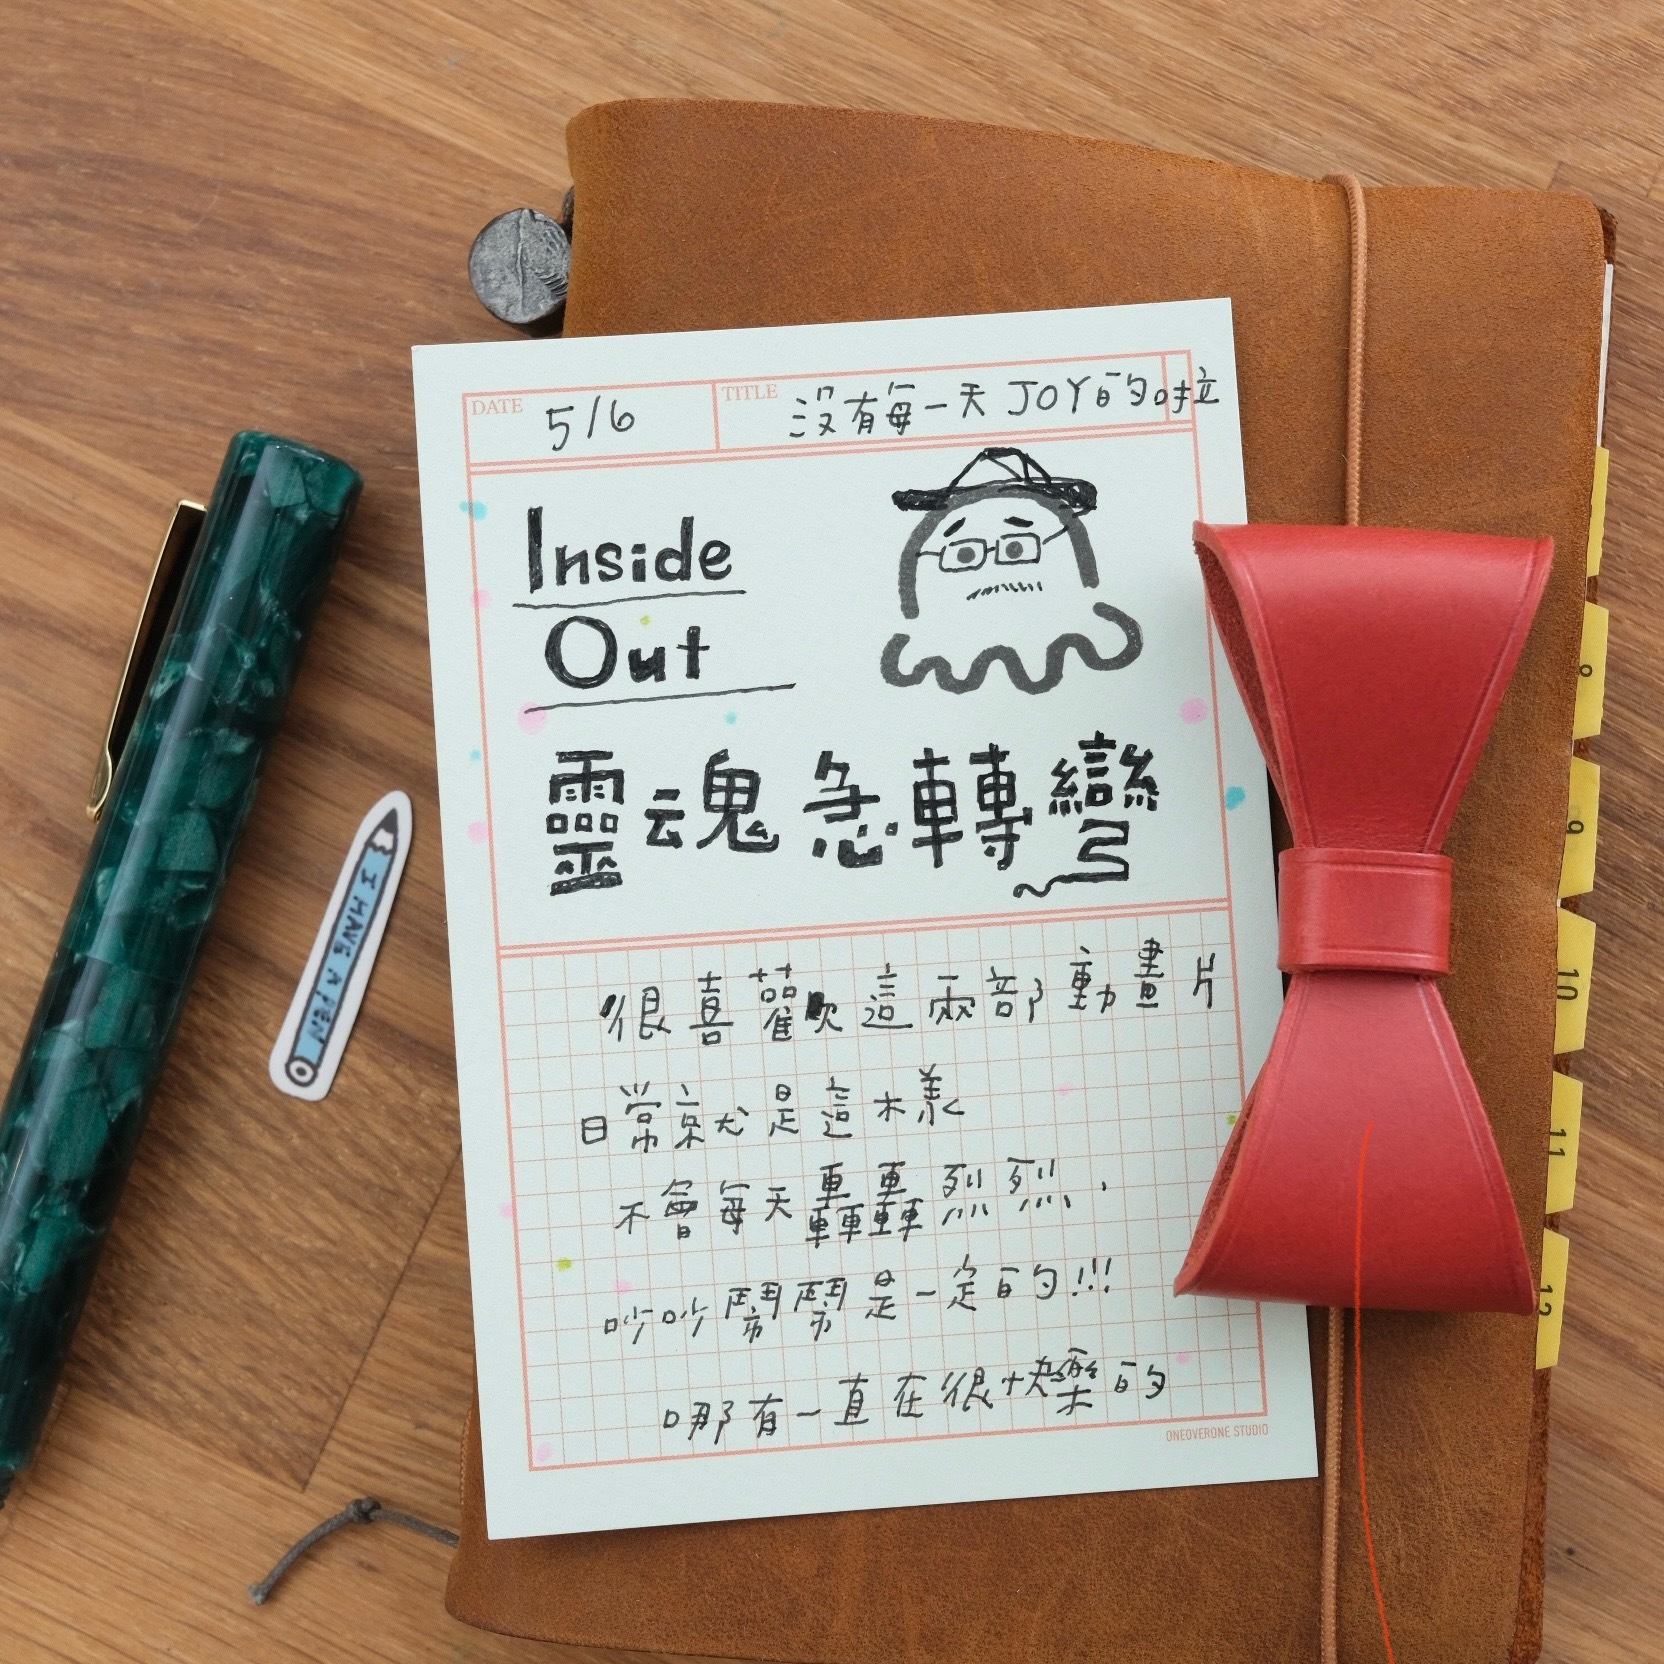 DATE 5/6 TITLE 沒有每一天JOY的啦
Inside
Out
靈魂急轉彎
很喜歡這兩部動畫片
日常就是這樣
不會每天轟轟烈烈，
吵吵鬧鬧是一定的!!!
哪有一直在很快樂的
ONEOVERONE STUDIO
I HAVE A PEN
8
9
10
11
12